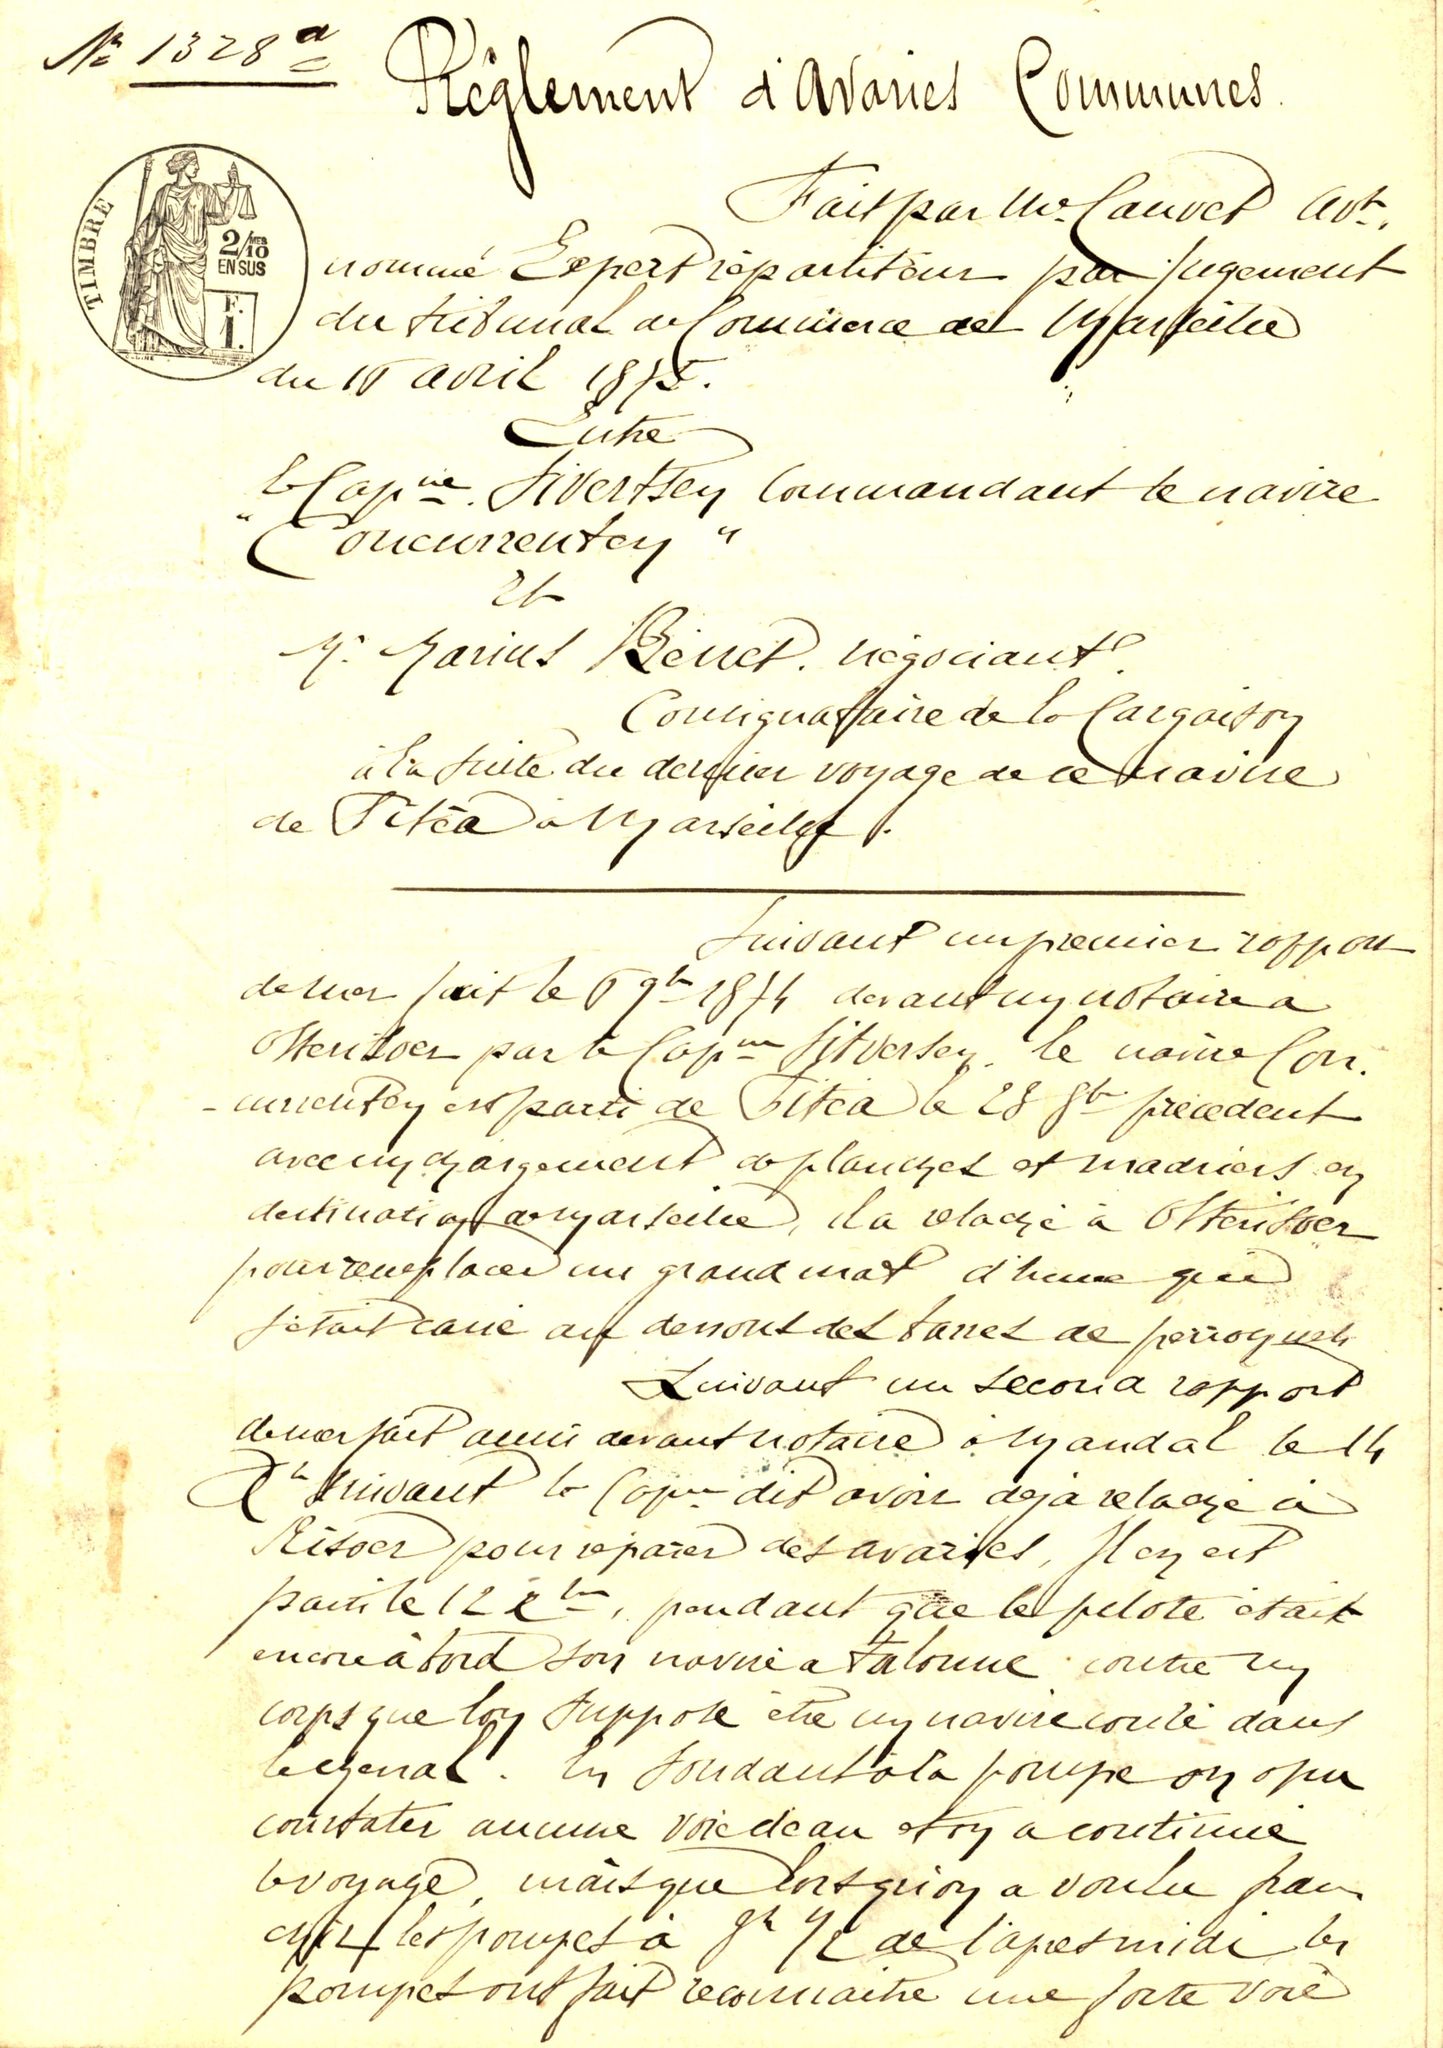 No 1328 a
Règlement d'Avaries Communes.
TIMBRE
2/10
EN SUS
F.
1.
Fait par Me Cauvet Avt.
nommé Expert répartiteur par jugement
du tribunal de Commerce de Marseille
du avril 1875.
Entre
le Capne Sivertsen Commandant le navire
"Concurrenten"
Et
M. Marius Bénet. négociant
Consignataire de la Cargaison
à la suite du dernier voyage de ce navire
de Pitéa à Marseille.
Suivant un premier rapport
de mer fait le 9bre 1874 devant un notaire à
Osterisoer par le Capne Sitversen. le navire Con-
-currenten est parti de Pitéa le 28 8bre précédent
avec un chargement de planches et madriers en
destination de Marseille, il a relaché à Osterisoer
pour remplacer un grand mat d'hune qui
s'était cassé au dessous des barres de perroquets
Suivant un second rapport
de mer fait aussi devant notaire à Mandal le 14
Xbre suivant le Capne dit avoir déjà relaché à
Risoer pour réparer des avaries, Il en est
parti le 12 Xbre, pendant que le pilote était
encore à bord son navire a talonné contre un
corps que l'on suppose être un navire coulé dans
le chenal. En sondant à la pompe on a pu
constater aucune voie d'eau et on a continué
le voyage, mais que lorsqu'on a voulu fran
chir les pompes à 8h 1/2 de l'apres midi les
pompes ont fait reconnaitre une forte voie